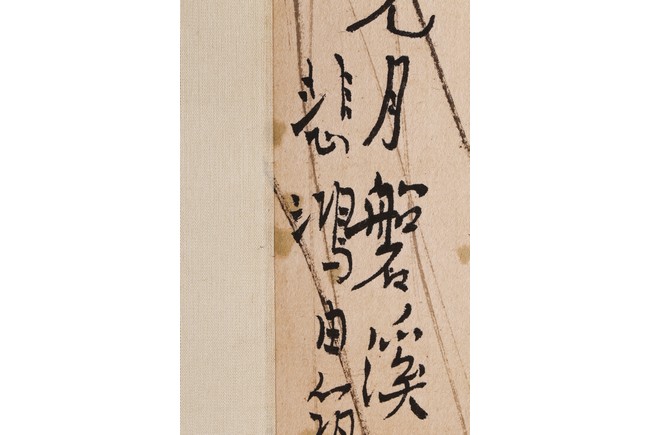 月磐溪
悲鴻由